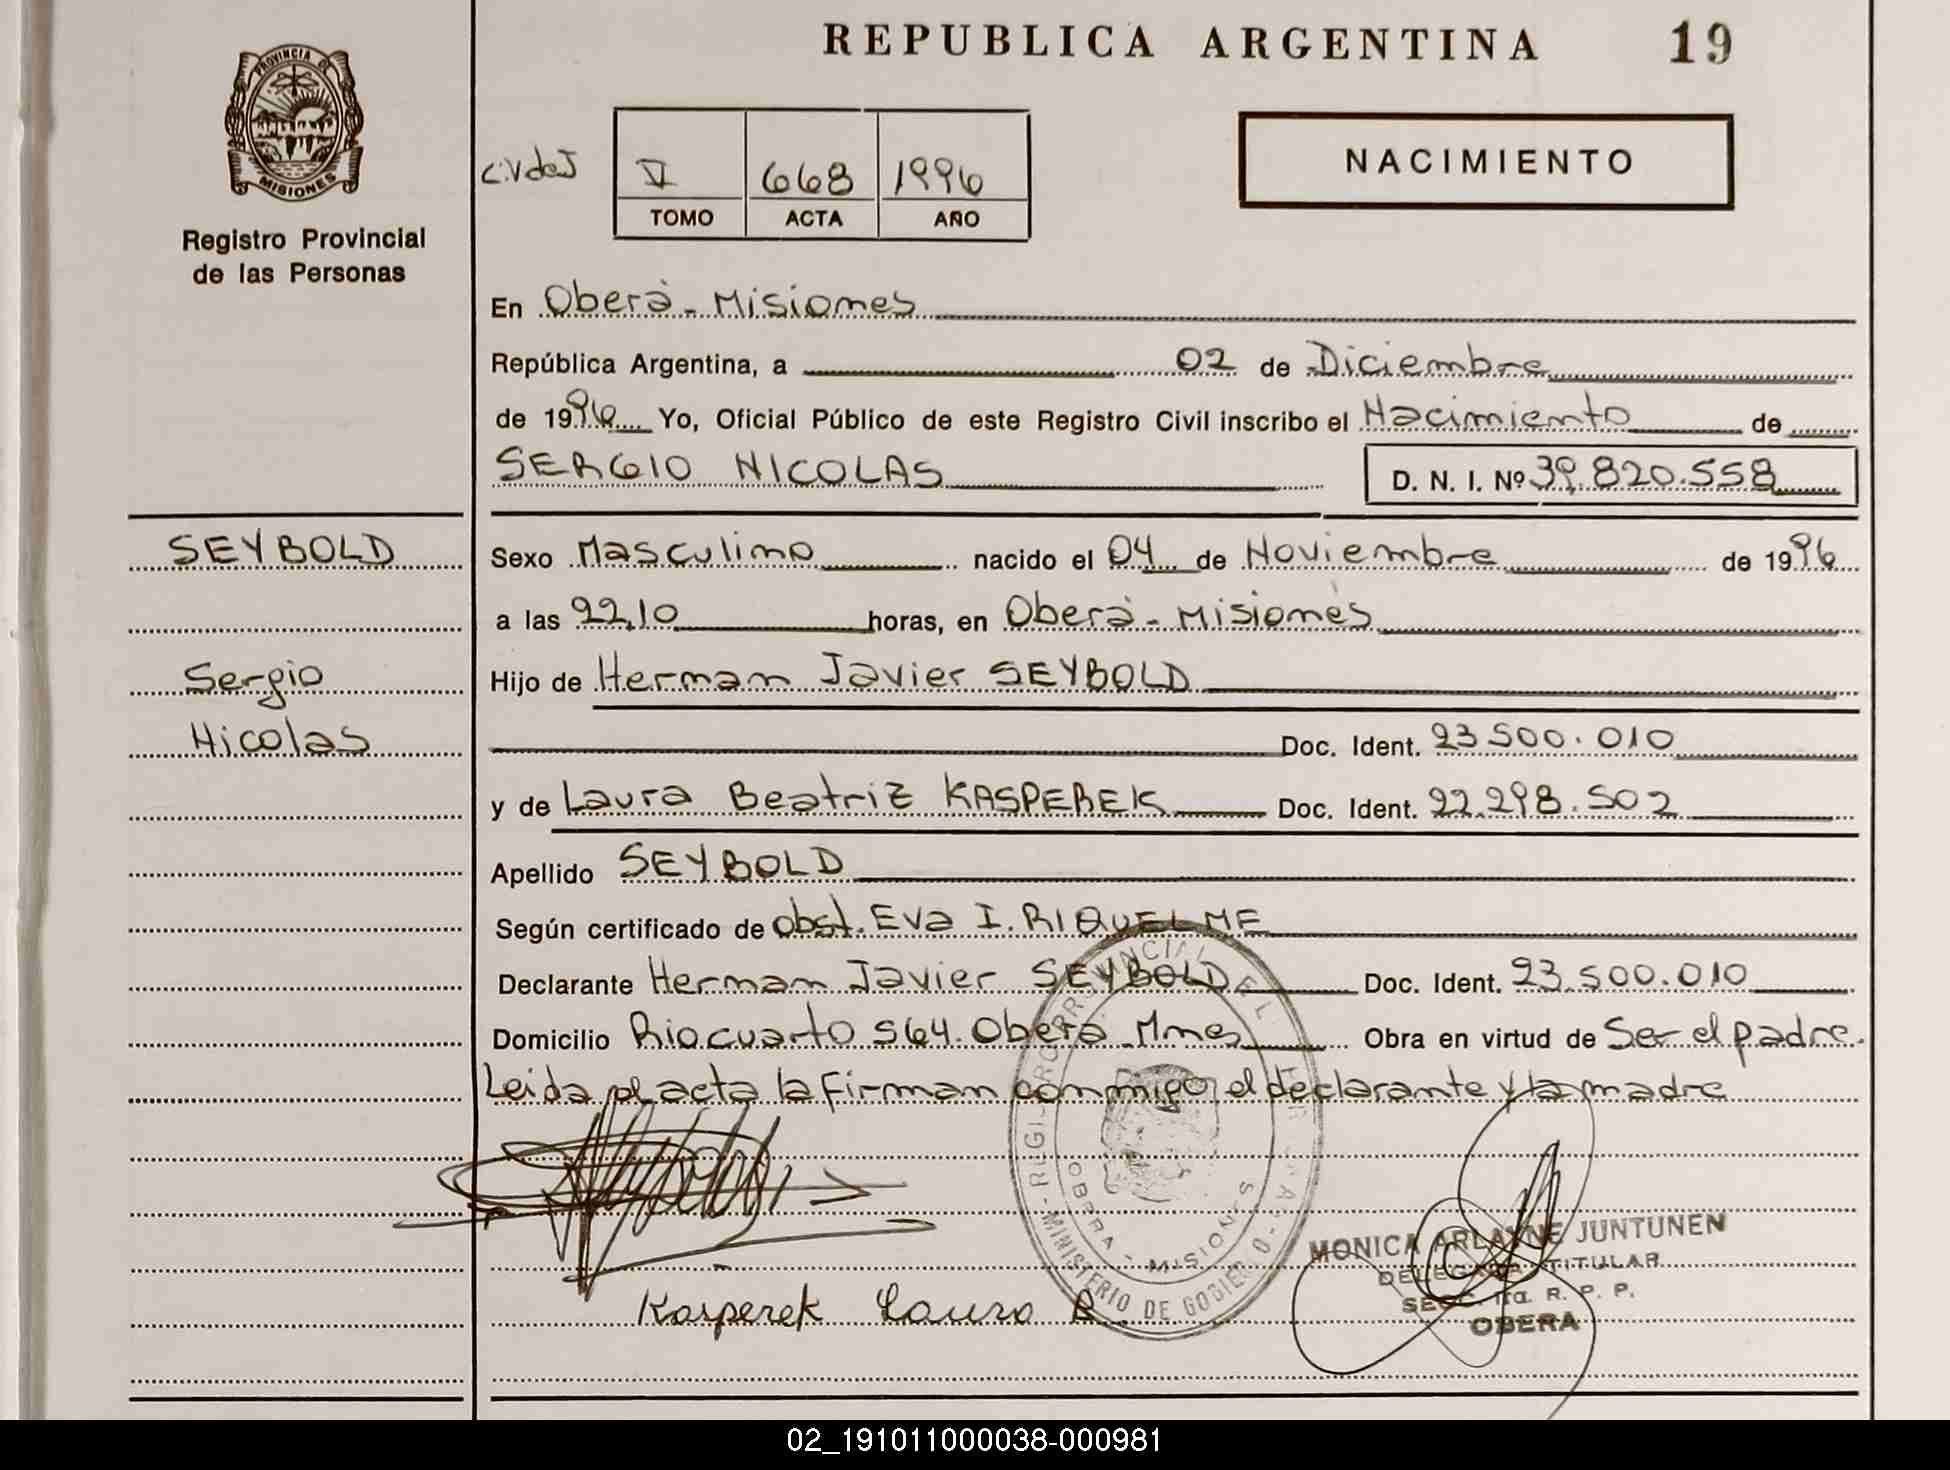 REPUBLICA ARGENTINA 19
PROVINCIA DE
MISIONES
Registro Provincial
de las Personas
C.VdeJ
V 668 1996
TOMO ACTA AÑO
NACIMIENTO
En Oberá - Misiones
República Argentina, a 02 de Diciembre
de 1996 Yo, Oficial Público de este Registro Civil inscribo el Nacimiento de
SERGIO NICOLAS D. N. I. Nº 39.820.558
SEYBOLD
Sexo Masculino nacido el 04 de Noviembre de 1996
a las 22,10 horas, en Oberá - Misiones
Sergio
Nicolas
Hijo de Hernan Javier SEYBOLD
Doc. Ident. 23500.010
y de Laura Beatriz KASPEREK Doc. Ident. 22.298.502
Apellido SEYBOLD
Según certificado de obst. Eva I. RIQUELME
Declarante Hernan Javier SEYBOLD Doc. Ident. 23.500.010
Domicilio Riocuarto 564. Oberá. Mnes Obra en virtud de Ser el padre.
Leida el acta la firman conmigo el declarante y la madre
OBERA - MISIONES
MINISTERIO DE GOBIERNO
MONICA ARLAYNE JUNTUNEN
DELEGADA TITULAR
SECC. 1ra. R. P. P.
OBERA
Kasperek Laura B.
02_191011000038-000981